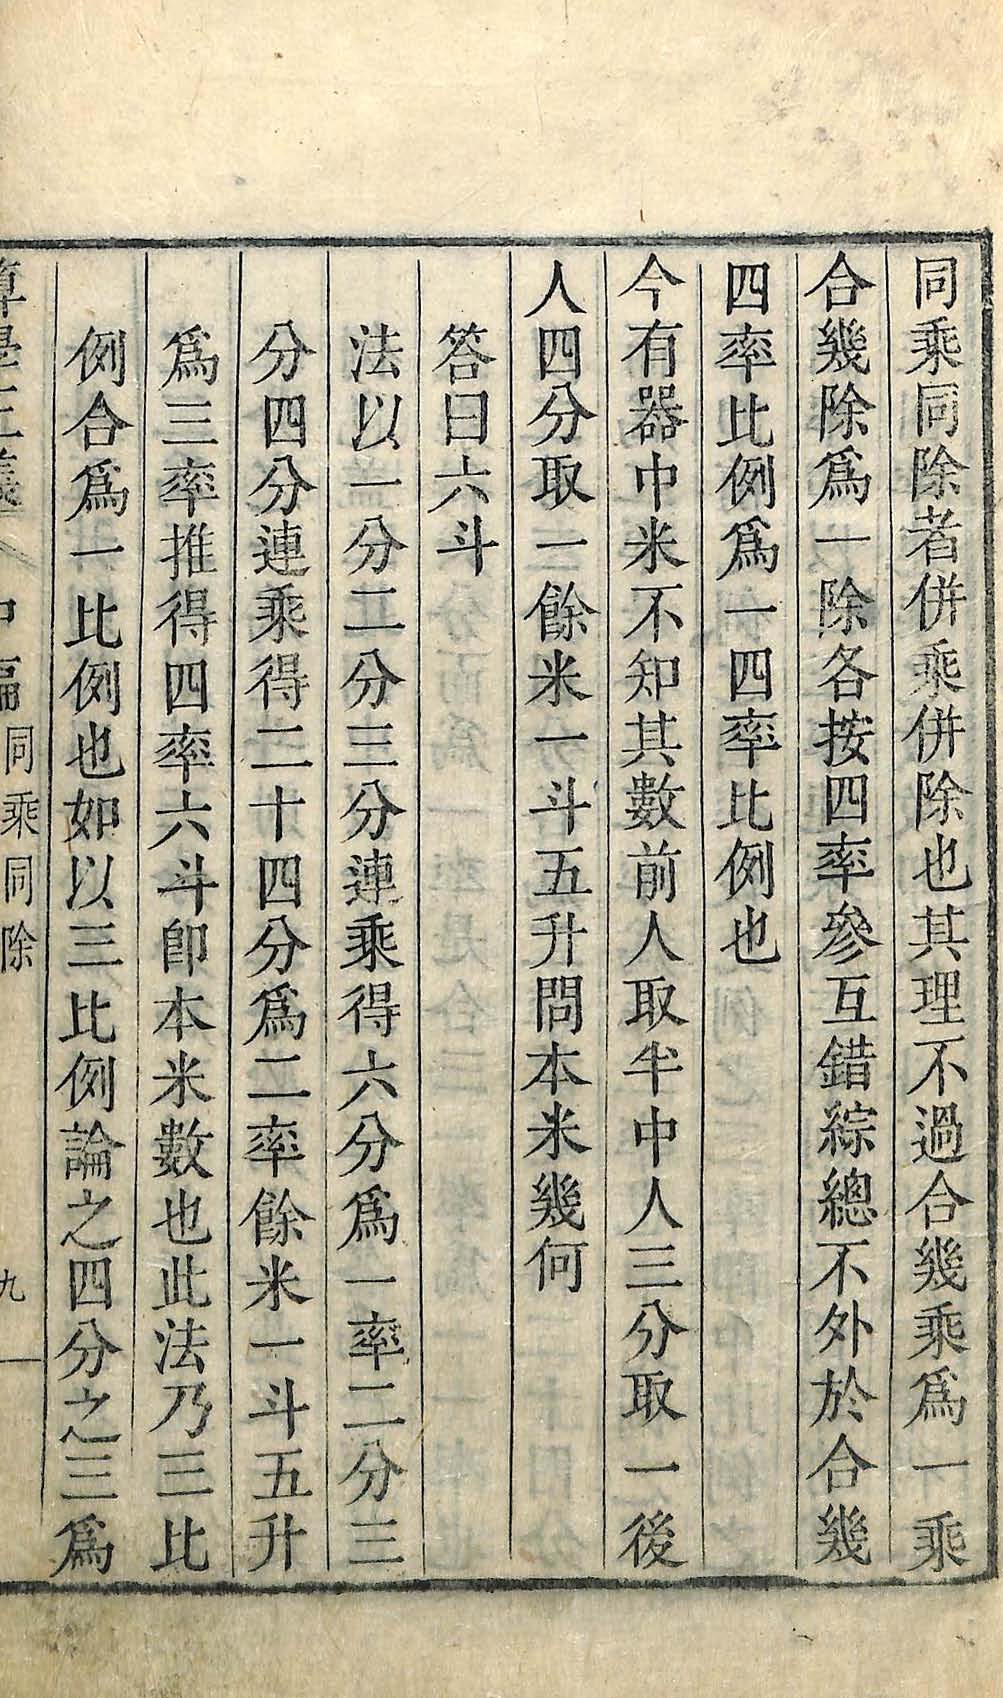 同乘同除者併乘併除也其理不過合幾乘爲一乘
合幾除爲一除各按四率參互錯綜總不外於合幾
四率比例爲一四率比例也
今有器中米不知其數前人取半中人三分取一後
人四分取一餘米一斗五升問本米幾何
答曰六斗
法以一分二分三分連乘得六分爲一率二分三
分四分連乘得二十四分爲二率餘米一斗五升
爲三率推得四率六斗卽本米數也此法乃三比
例合爲一比例也如以三比例論之四分之三爲
同乘同除
九